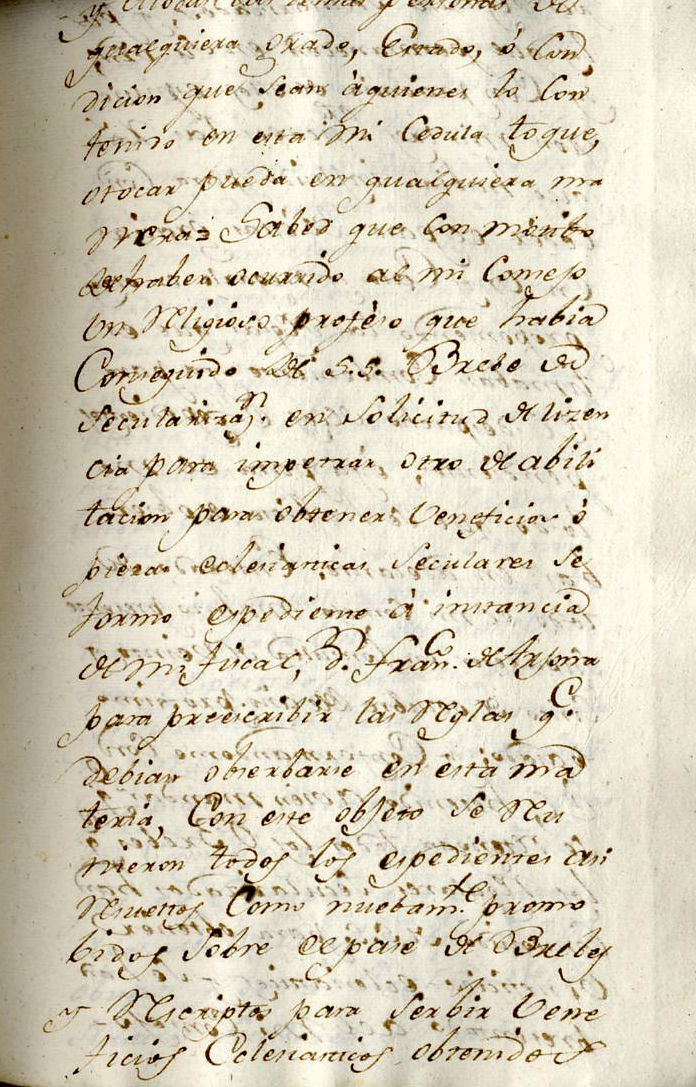 y atodas las demas personas de
qualquiera grado, Estado, ó Con
dicion que sean àquienes lo Con
tenido en esta Mi Cedula toque,
otocar pueda en qualquiera ma
nera= Sabed que Con motibo
de haber ocurrido al mi Consejo
Un Religioso profeso que habia
Conseguido de S.S. Brebe de
Secularizaⁿ. en Solicitud de lizen
cia para impetrar otro de abili
tacion para obtener Veneficios ó
piezas eclesiasticas Seculares Se
formo espediente à instancia
de mi fiscal, D.ⁿ Fran.ᶜᵒ de Arjona
para preescribir las Reglas q.ᵉ
debian obserbarse en esta ma
teria, Con este objeto Se Reu
nieron todos los espedientes asi
Resueltos Como nuebam.ᵗᵉ promo
bidos Sobre el pase de Brebes
y Rescriptos para Serbir Vene
ficios Eclesiasticos obtenidos